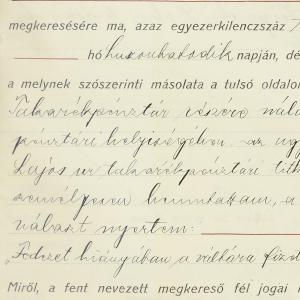 megkeresésére ma, azaz egyezerkilenczszáz
hó huszonhatodik napján, dé
a melynek szószerinti másolata a tulsó oldalon
Takarékpénztár részére nálu
pénztári helyiségében az ügy
Lajos ur takarékpénztári titk
személyesen bemutattam, a
választ nyertem:
„Fedezet hiányában a váltóra fize
Miről, a fent nevezett megkereső fél jogai